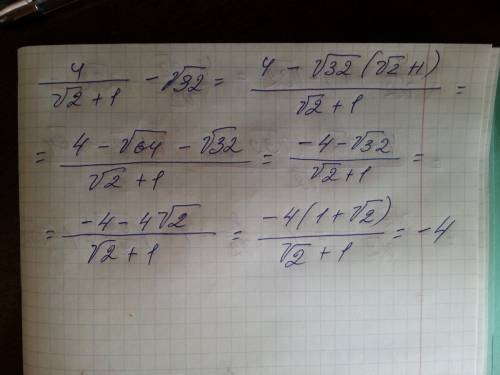 4/(√2 + 1) - √32 = (4 - √32(√2+1))/(√2 + 1) =
= (4 - √64 - √32)/(√2 + 1) = (-4 - √32)/(√2 + 1) =
= (-4 - 4√2)/(√2 + 1) = (-4(1 + √2))/(√2 + 1) = -4